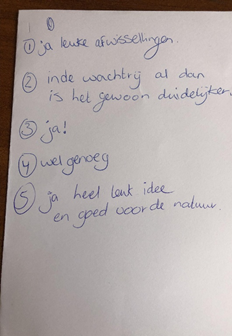 ① ja leuke afwisselingen.
② inde wachtrij al dan
is het gewoon duidelijker.
③ ja!
④ wel genoeg
⑤ ja heel leuk idee
en goed voor de natuur.